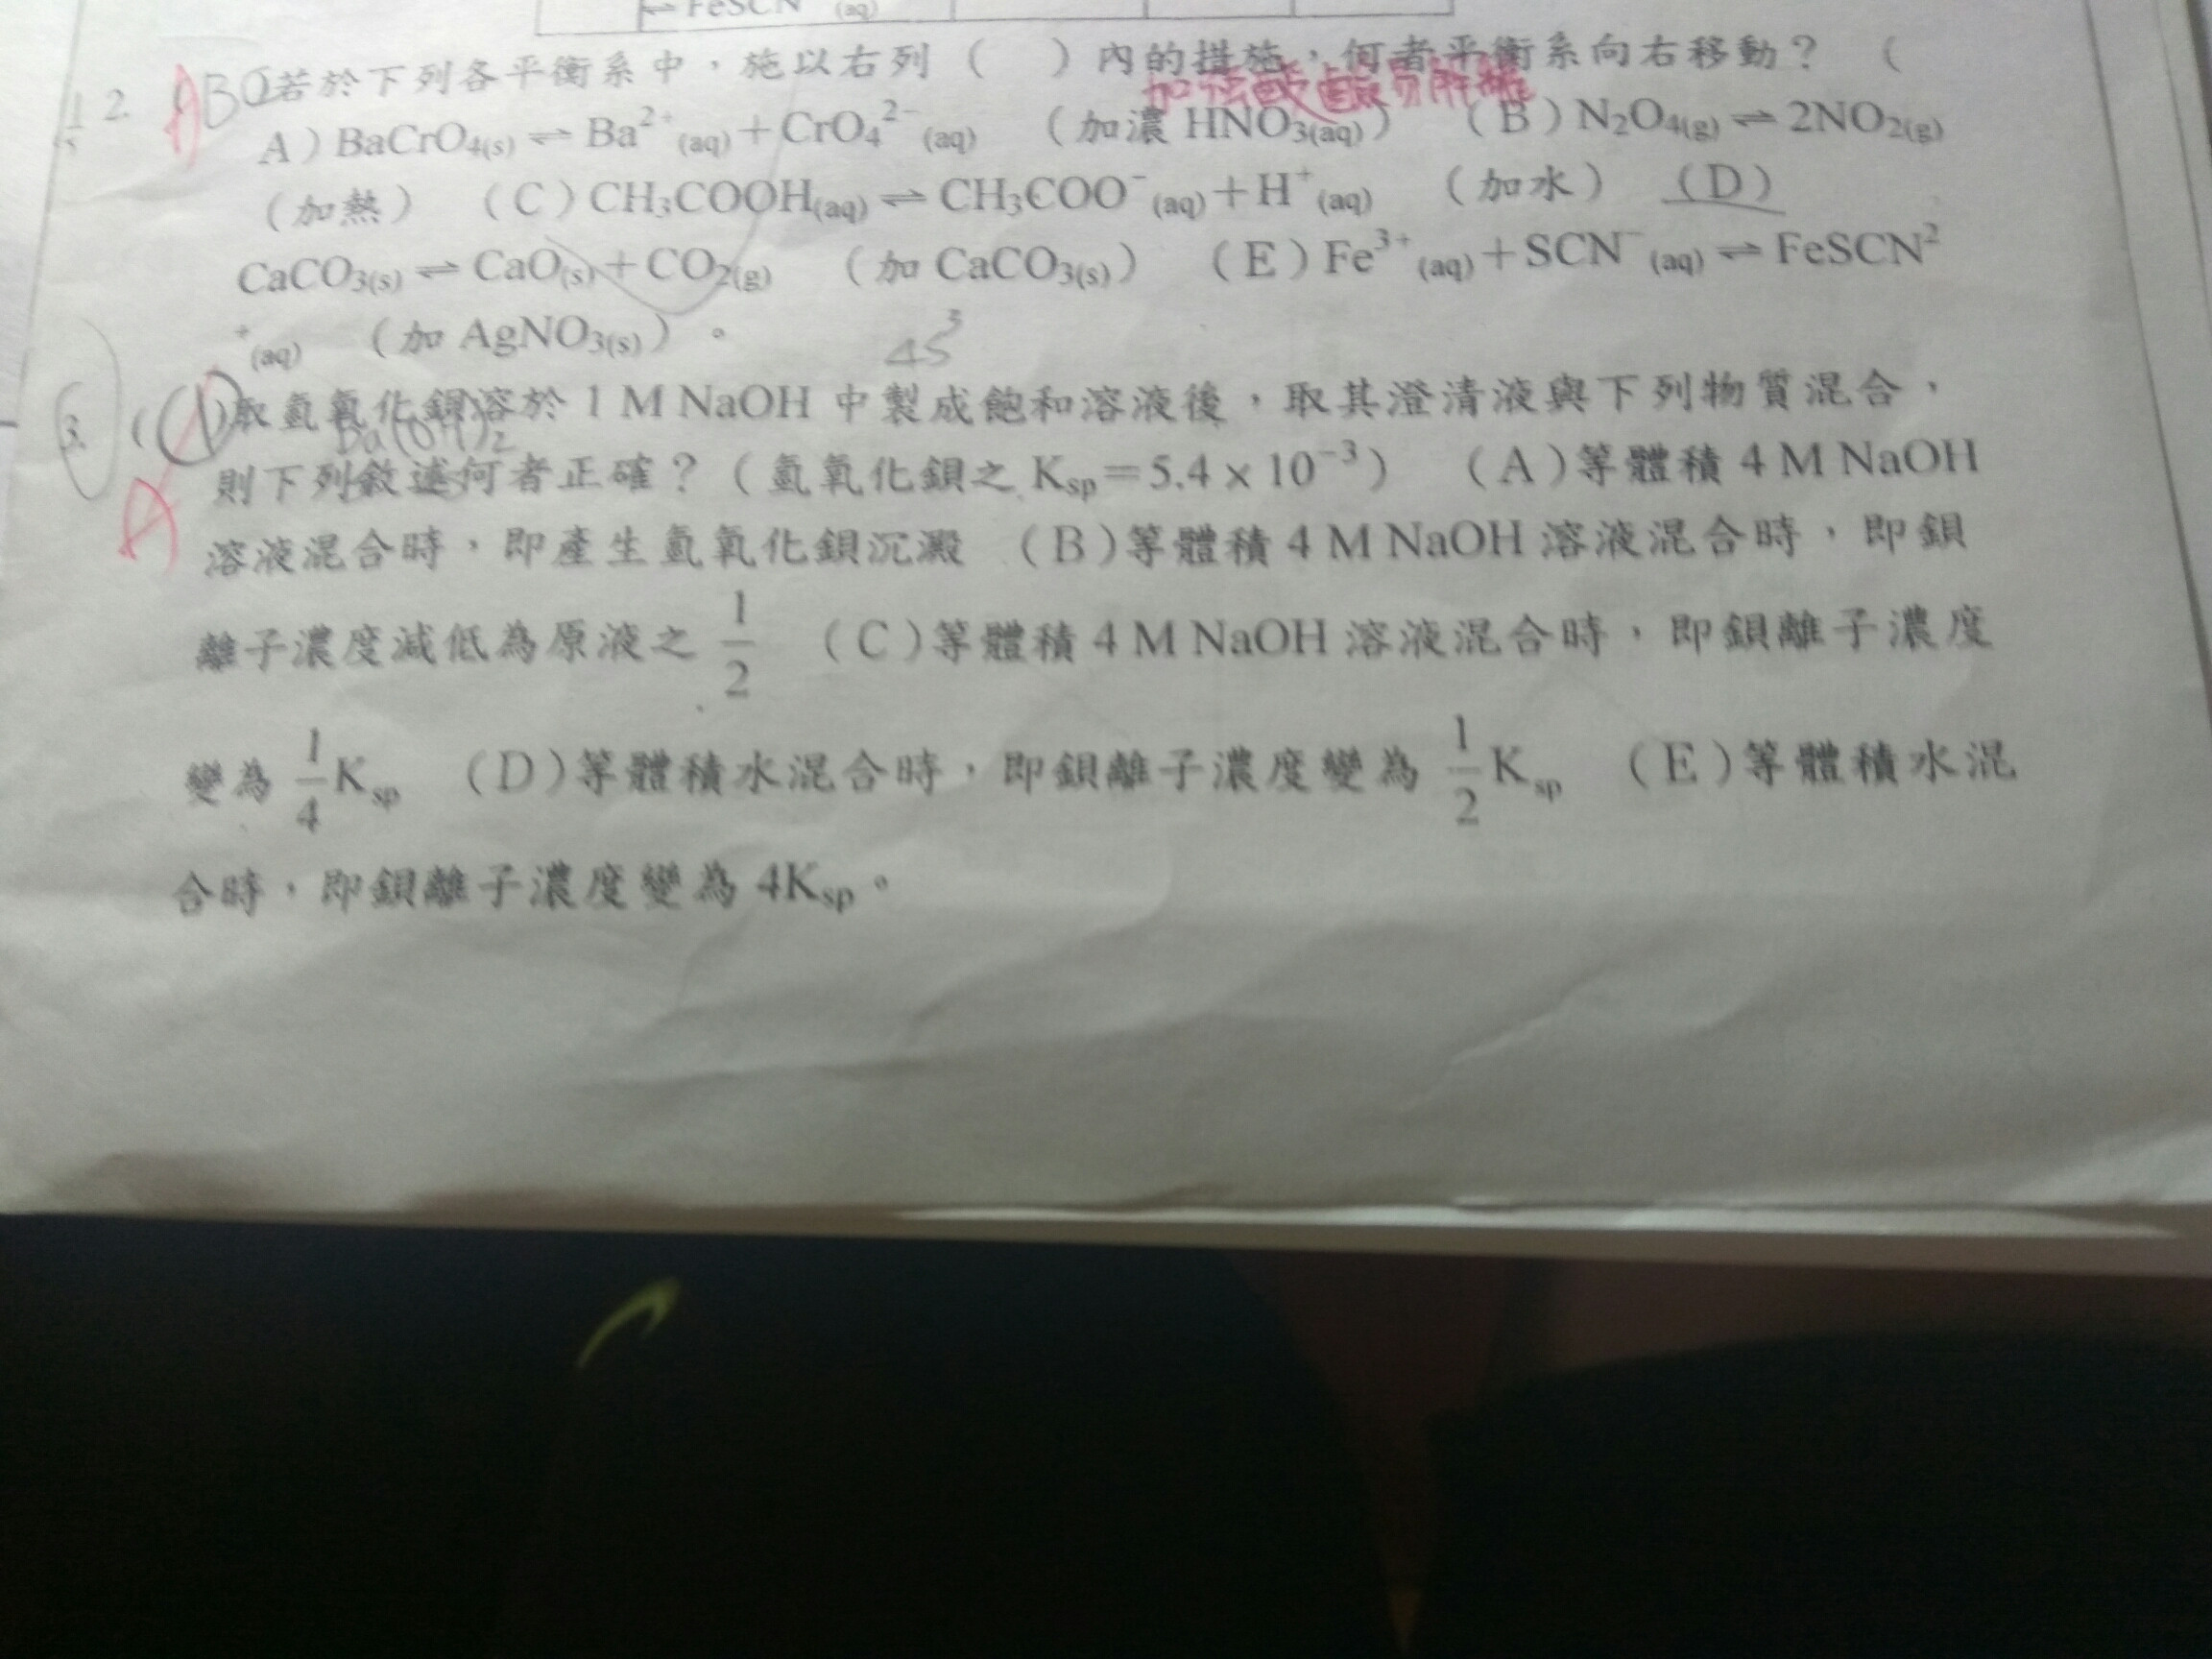 ⇌ FeSCN (aq)
2. ABC 若於下列各平衡系中，施以右列（　）內的措施，何者平衡系向右移動？（
加強酸鹼易解離
A）BaCrO₄(s) ⇌ Ba²⁺(aq)＋CrO₄²⁻(aq)　（加濃 HNO₃(aq)）　（B）N₂O₄(g) ⇌ 2NO₂(g)
（加熱）（C）CH₃COOH(aq) ⇌ CH₃COO⁻(aq)＋H⁺(aq)　（加水）（D）
CaCO₃(s) ⇌ CaO(s)＋CO₂(g)　（加 CaCO₃(s)）（E）Fe³⁺(aq)＋SCN⁻(aq) ⇌ FeSCN²
⁺(aq)　（加 AgNO₃(s)）。
4S³
3. ( A )取氫氧化鋇溶於 1 M NaOH 中製成飽和溶液後，取其澄清液與下列物質混合，
Ba(OH)₂
A
則下列敘述何者正確？（氫氧化鋇之 Ksp＝5.4 × 10⁻³）（A）等體積 4 M NaOH
溶液混合時，即產生氫氧化鋇沉澱　（B）等體積 4 M NaOH 溶液混合時，即鋇
離子濃度減低為原液之 1/2　（C）等體積 4 M NaOH 溶液混合時，即鋇離子濃度
變為 1/4 Ksp　（D）等體積水混合時，即鋇離子濃度變為 1/2 Ksp　（E）等體積水混
合時，即鋇離子濃度變為 4Ksp。